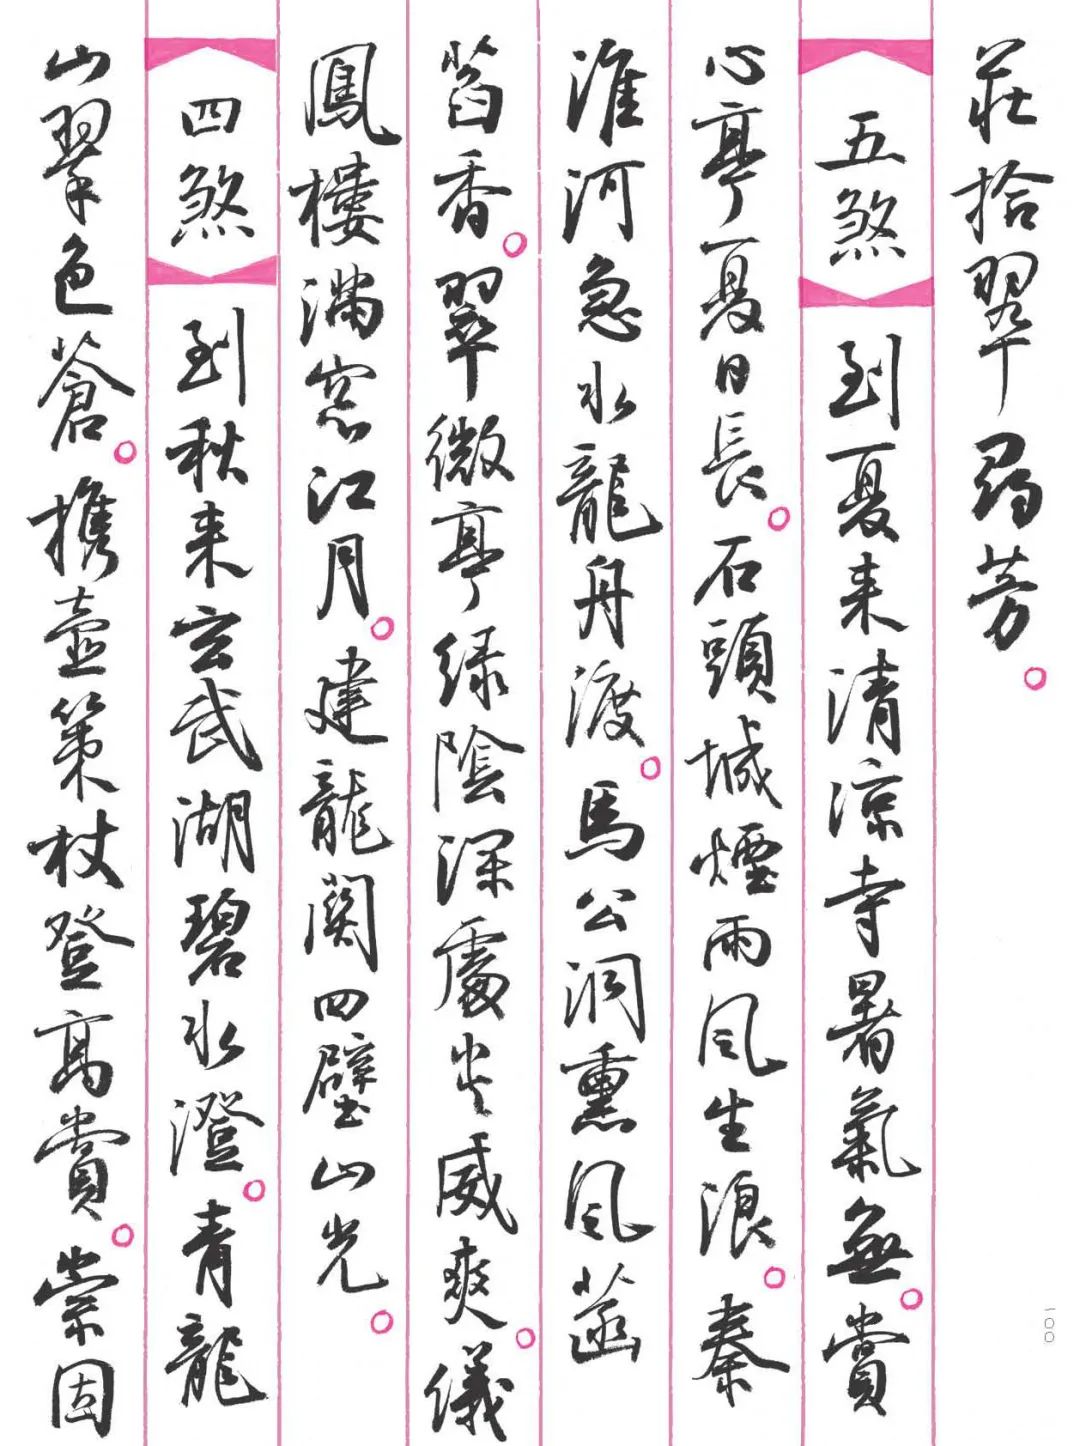 莊拾翠尋芳。
五煞 到夏来清凉寺暑氣無。賞
心亭夏日長。石頭城煙雨風生浪。秦
淮河急水龍舟渡。馬公洞熏風菡
萏香。翠微亭绿陰深處炎威爽。儀
鳳樓滿窓江月。建龍關四壁山光。
四煞 到秋来玄武湖碧水澄。青龍
山翠色蒼。携壺策杖登高賞。崇因
一〇〇